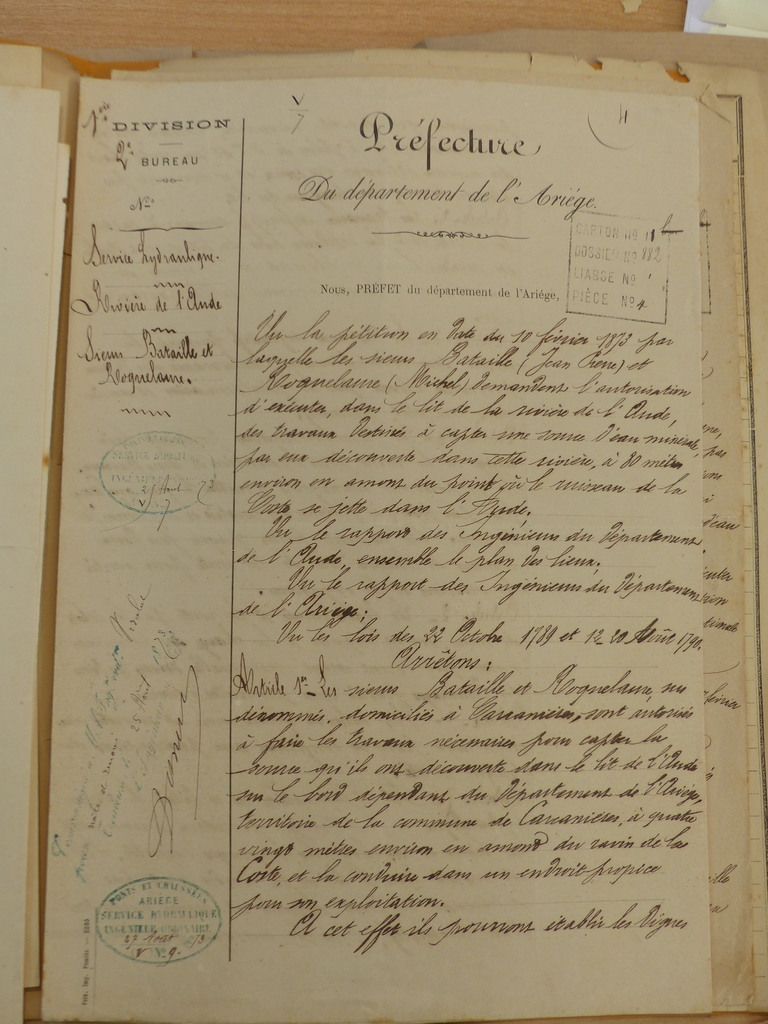 1ère DIVISION
2e BUREAU
N°
Service hydraulique.
Rivière de l'Aude
Sieurs Bataille et
Roquelaure.
V
7
4
Préfecture
Du département de l'Ariége.
CARTON No 11
DOSSIER No 882
LIASSE No 1
PIÈCE No 4
Nous, PRÉFET du département de l'Ariége,
Vu la pétition en date du 10 février 1873 par
laquelle les sieurs Bataille (Jean Pierre) et
Roquelaure (Michel) demandent l'autorisation
d'exécuter, dans le lit de la rivière de l'Aude,
des travaux destinés à capter une source d'eau minérale,
par eux découverte dans cette rivière, à 80 mètres
environ en amont du point où le ruisseau de la
Coste se jette dans l'Aude.
Vu le rapport des Ingénieurs du Département
de l'Aude, ensemble le plan des lieux;
Vu le rapport des Ingénieurs du Département
de l'Ariége;
Vu les lois des 22 Octobre 1789 et 12-20 Août 1790.
Arrêtons:
Article 1er - Les sieurs Bataille et Roquelaure, sus
dénommés, domiciliés à Carcanières, sont autorisés
à faire les travaux nécessaires pour capter la
source qu'ils ont découverte dans le lit de l'Aude
sur le bord dépendant du Département de l'Ariége,
territoire de la commune de Carcanières, à quatre
vingt mètres environ en amont du ravin de la
Coste, et la conduire dans un endroit propice
pour son exploitation.
A cet effet ils pourront établir les digues
SERVICE HYDRAULIQUE
27 Août 73
V
7
25 Août 1873
PONTS ET CHAUSSÉES
ARIÉGE
SERVICE HYDRAULIQUE
INGÉNIEUR ORDINAIRE
27 Août 73
V N° 9